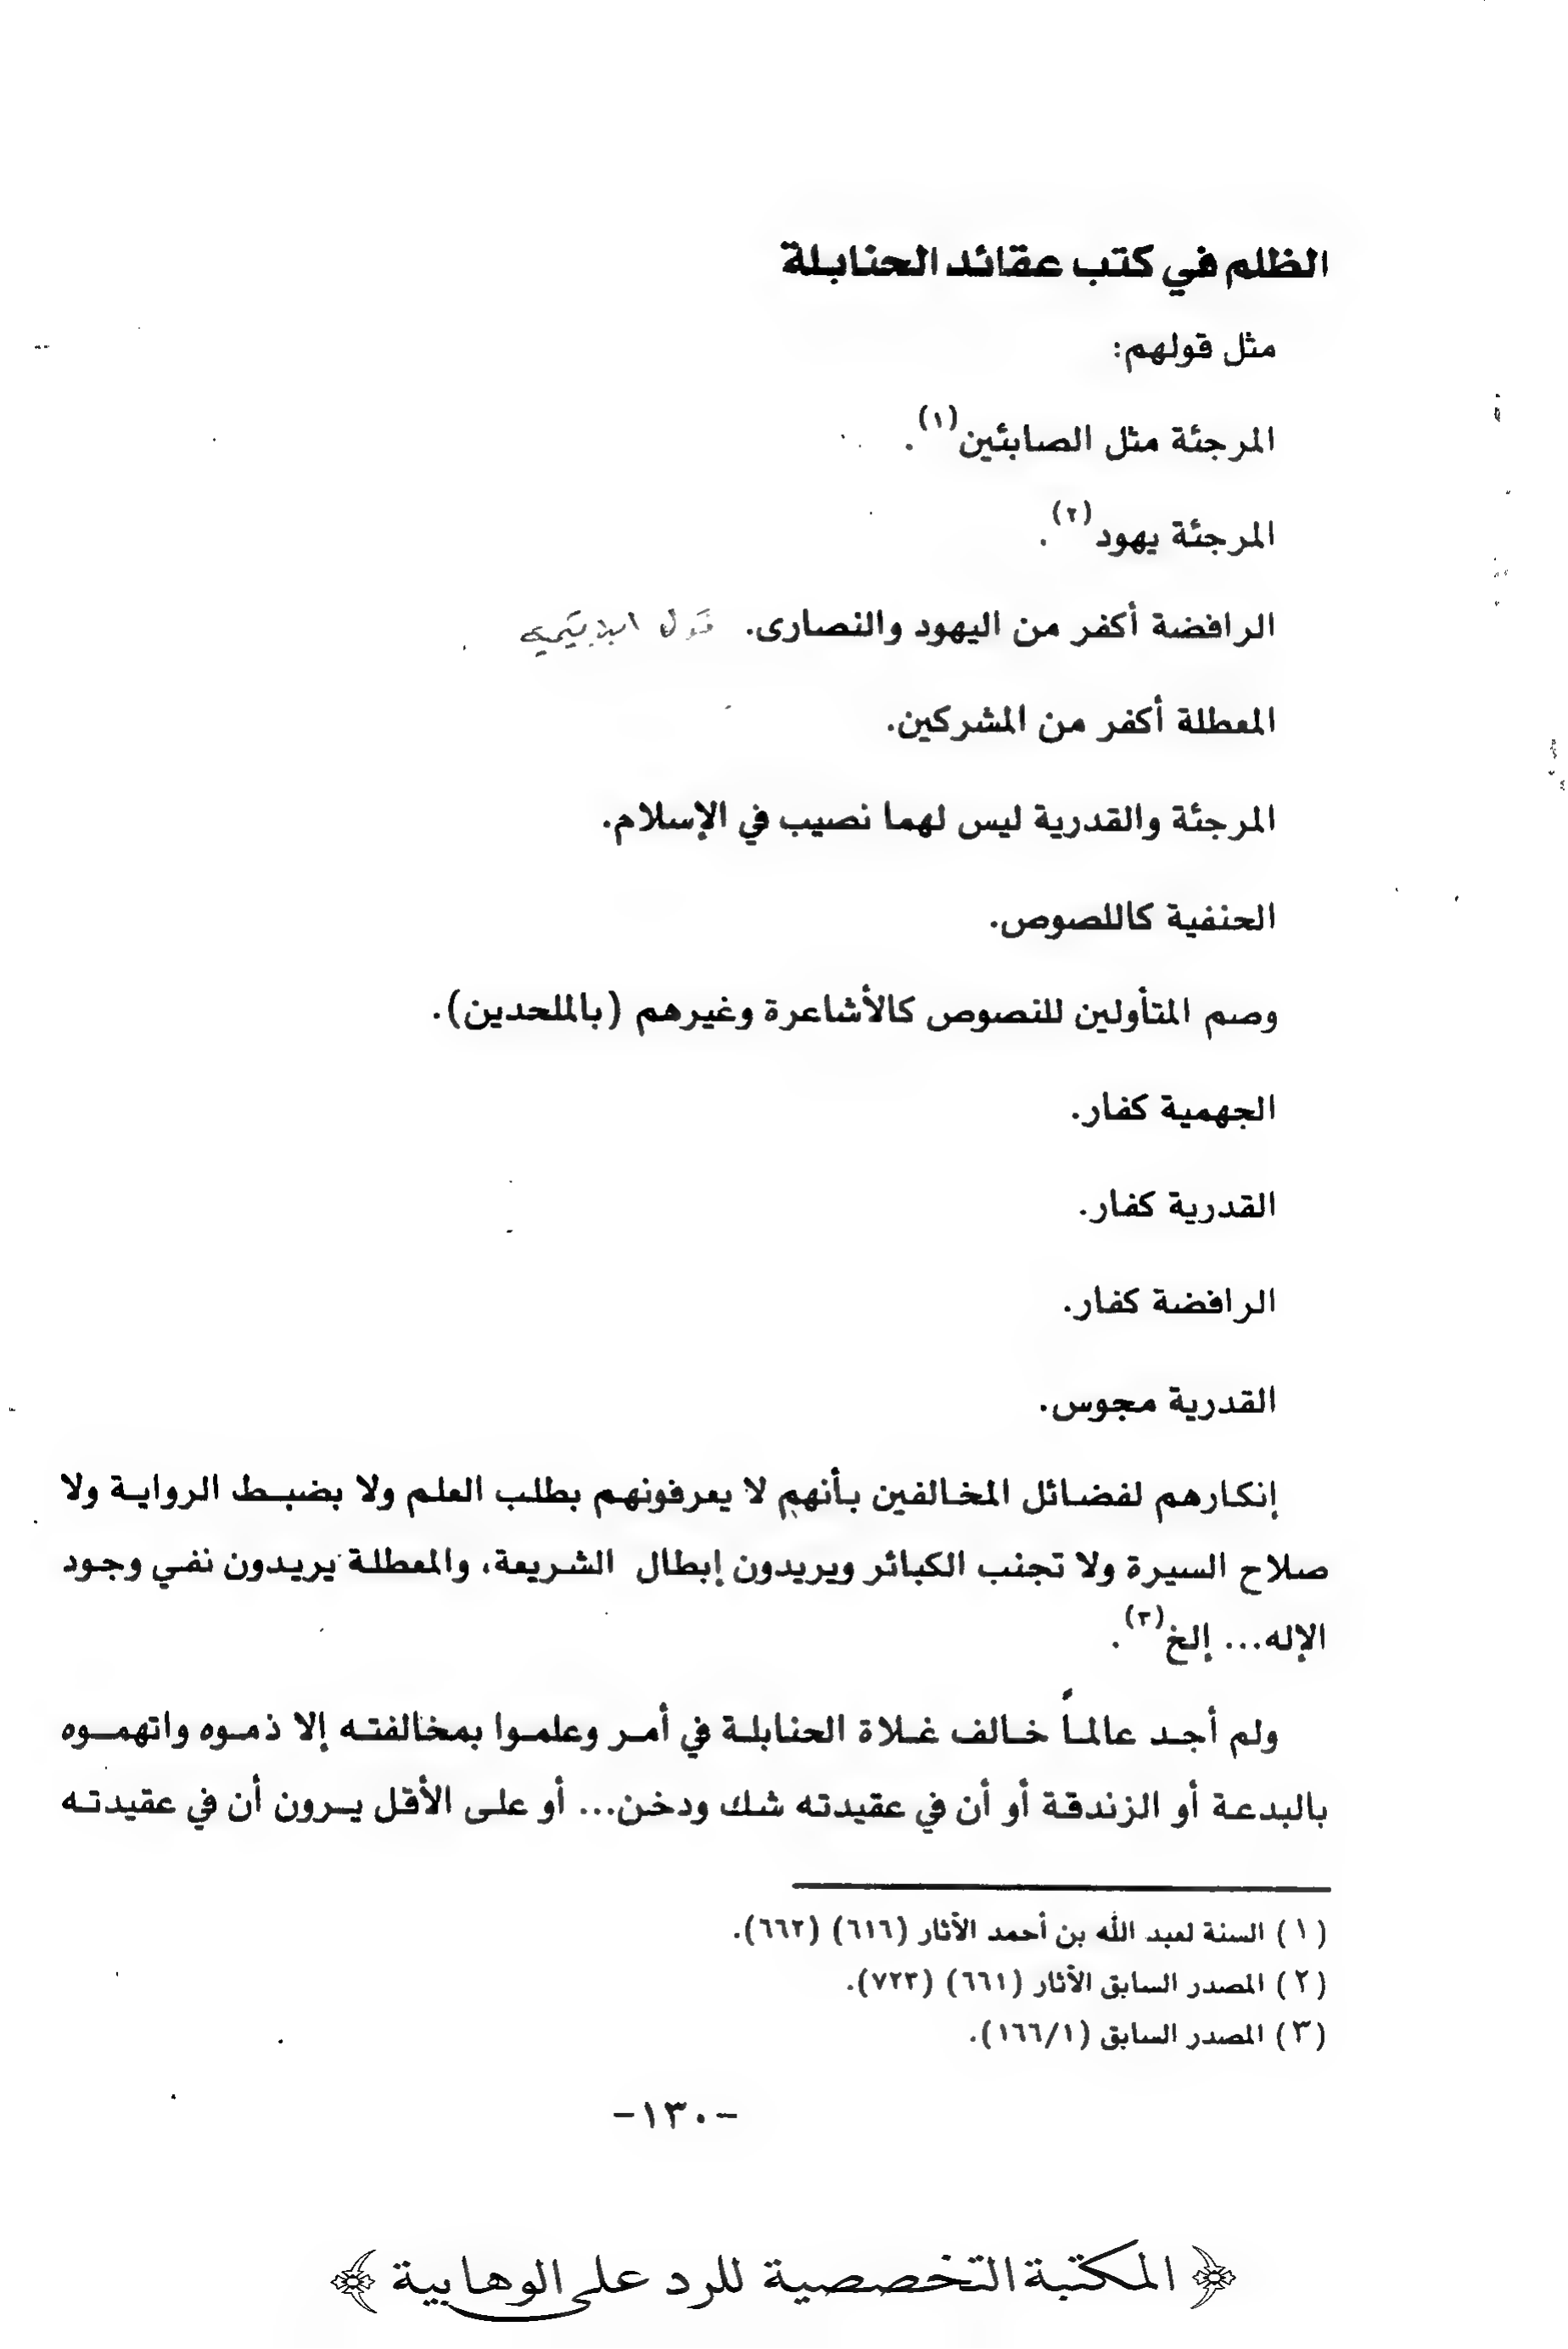 الظلم في كتب عقائد الحنابلة
مثل قولهم:
المرجئة مثل الصابئين(١).
المرجئة يهود(٢).
الرافضة أكفر من اليهود والنصارى. قول ابن تيمية
المعطلة أكفر من المشركين.
المرجئة والقدرية ليس لهما نصيب في الإسلام.
الحنفية كاللصوص.
وصم المتأولين للنصوص كالأشاعرة وغيرهم (بالملحدين).
الجهمية كفار.
القدرية كفار.
الرافضة كفار.
القدرية مجوس.
إنكارهم لفضائل المخالفين بأنهم لا يعرفونهم بطلب العلم ولا بضبط الرواية ولا
صلاح السيرة ولا تجنب الكبائر ويريدون إبطال الشريعة، والمعطلة يريدون نفي وجود
الإله... إلخ(٣).
ولم أجد عالماً خالف غلاة الحنابلة في أمر وعلموا بمخالفته إلا ذموه واتهموه
بالبدعة أو الزندقة أو أن في عقيدته شك ودخن... أو على الأقل يرون أن في عقيدته
(١) السنة لعبد الله بن أحمد الآثار (٦١٦) (٦٦٢).
(٢) المصدر السابق الآثار (٦٦١) (٧٢٣).
(٣) المصدر السابق (١٦٦/١).
-١٣٠-
المكتبة التخصصية للرد على الوهابية